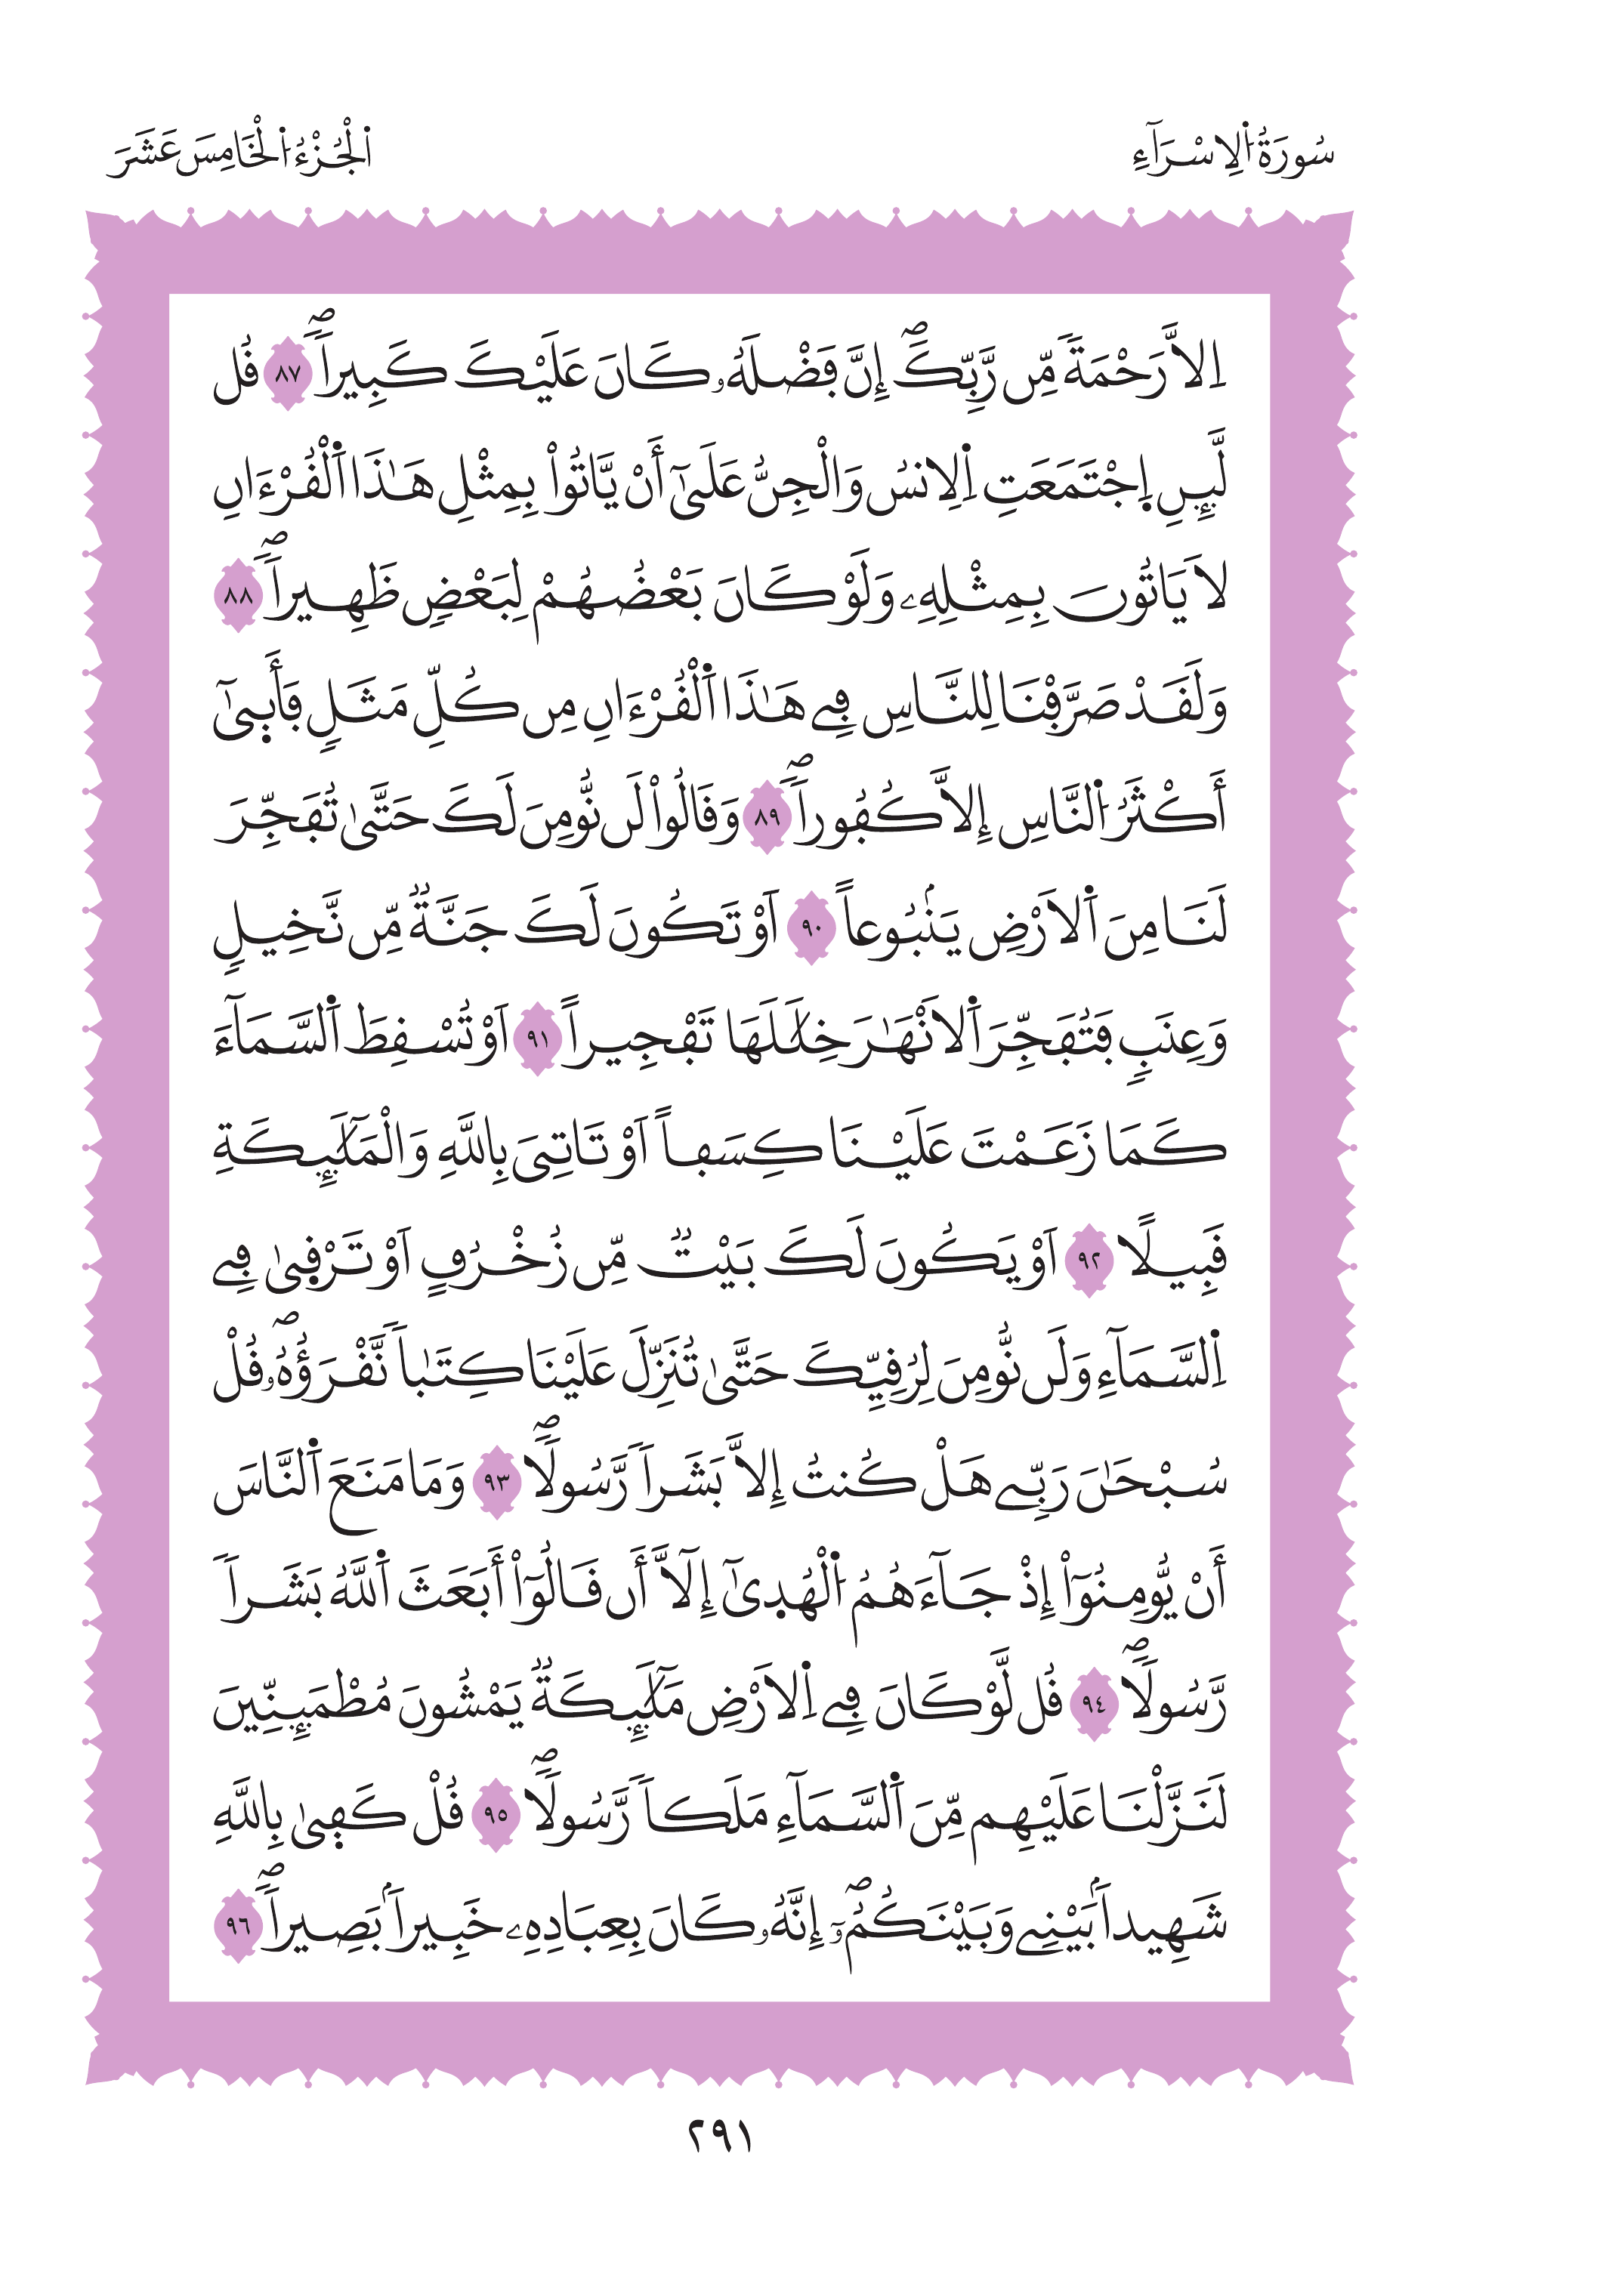 سُورَةُ اُ۬لِاسْرَآءِ
اَ۬لْجُزْءُ اُ۬لْخَامِسَ عَشَرَ
اِلَّا رَحْمَةٗ مِّن رَّبِّكَۖ إِنَّ فَضْلَهُۥ كَانَ عَلَيْكَ كَبِيراٗۖ ٨٧ قُل
لَّئِنِ اِ۪جْتَمَعَتِ اِ۬لِانسُ وَالْجِنُّ عَلَىٰٓ أَنْ يَّاتُواْ بِمِثْلِ هَٰذَا اَ۬لْقُرْءَانِ
لَا يَاتُونَ بِمِثْلِهِۦ وَلَوْ كَانَ بَعْضُهُمْ لِبَعْضٖ ظَهِيراٗۖ ٨٨
وَلَقَدْ صَرَّفْنَا لِلنَّاسِ فِے هَٰذَا اَ۬لْقُرْءَانِ مِن كُلِّ مَثَلٖ فَأَب۪ىٰٓ
أَكْثَرُ اُ۬لنَّاسِ إِلَّا كُفُوراٗۖ ٨٩ وَقَالُواْ لَن نُّومِنَ لَكَ حَتَّىٰ تُفَجِّرَ
لَنَا مِنَ اَ۬لَارْضِ يَنۢبُوعاً ٩٠ اَوْ تَكُونَ لَكَ جَنَّةٞ مِّن نَّخِيلٖ
وَعِنَبٖ فَتُفَجِّرَ اَ۬لَانْهَٰرَ خِلَٰلَهَا تَفْجِيراً ٩١ اَوْ تُسْقِطَ اَ۬لسَّمَآءَ
كَمَا زَعَمْتَ عَلَيْنَا كِسَفاً اَوْ تَاتِىَ بِاللَّهِ وَالْمَلَٰٓئِكَةِ
قَبِيلًا ٩٢ اَوْ يَكُونَ لَكَ بَيْتٞ مِّن زُخْرُفٍ اَوْ تَرْق۪ىٰ فِے
اِ۬لسَّمَآءِ وَلَن نُّومِنَ لِرُقِيِّكَ حَتَّىٰ تُنَزِّلَ عَلَيْنَا كِتَٰباٗ نَّقْرَؤُهُۥۖ قُلْ
سُبْحَٰنَ رَبِّے هَلْ كُنتُ إِلَّا بَشَراٗ رَّسُولاٗۖ ٩٣ وَمَا مَنَعَ اَ۬لنَّاسَ
أَنْ يُّومِنُوٓاْ إِذْ جَآءَهُمُ اُ۬لْهُد۪ىٰٓ إِلَّآ أَن قَالُوٓاْ أَبَعَثَ اَ۬للَّهُ بَشَراٗ
رَّسُولاٗۖ ٩٤ قُل لَّوْ كَانَ فِے اِ۬لَارْضِ مَلَٰٓئِكَةٞ يَمْشُونَ مُطْمَئِنِّينَ
لَنَزَّلْنَا عَلَيْهِم مِّنَ اَ۬لسَّمَآءِ مَلَكاٗ رَّسُولاٗۖ ٩٥ قُلْ كَف۪ىٰ بِاللَّهِ
شَهِيداَۢ بَيْنِے وَبَيْنَكُمُۥٓۖ إِنَّهُۥ كَانَ بِعِبَادِهِۦ خَبِيراَۢ بَصِيراٗۖ ٩٦
٢٩١